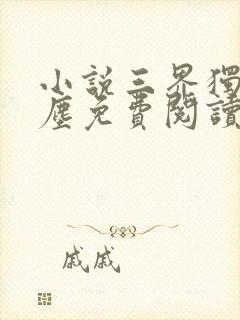 小說三界獨
塵免費閱讀
戚戚